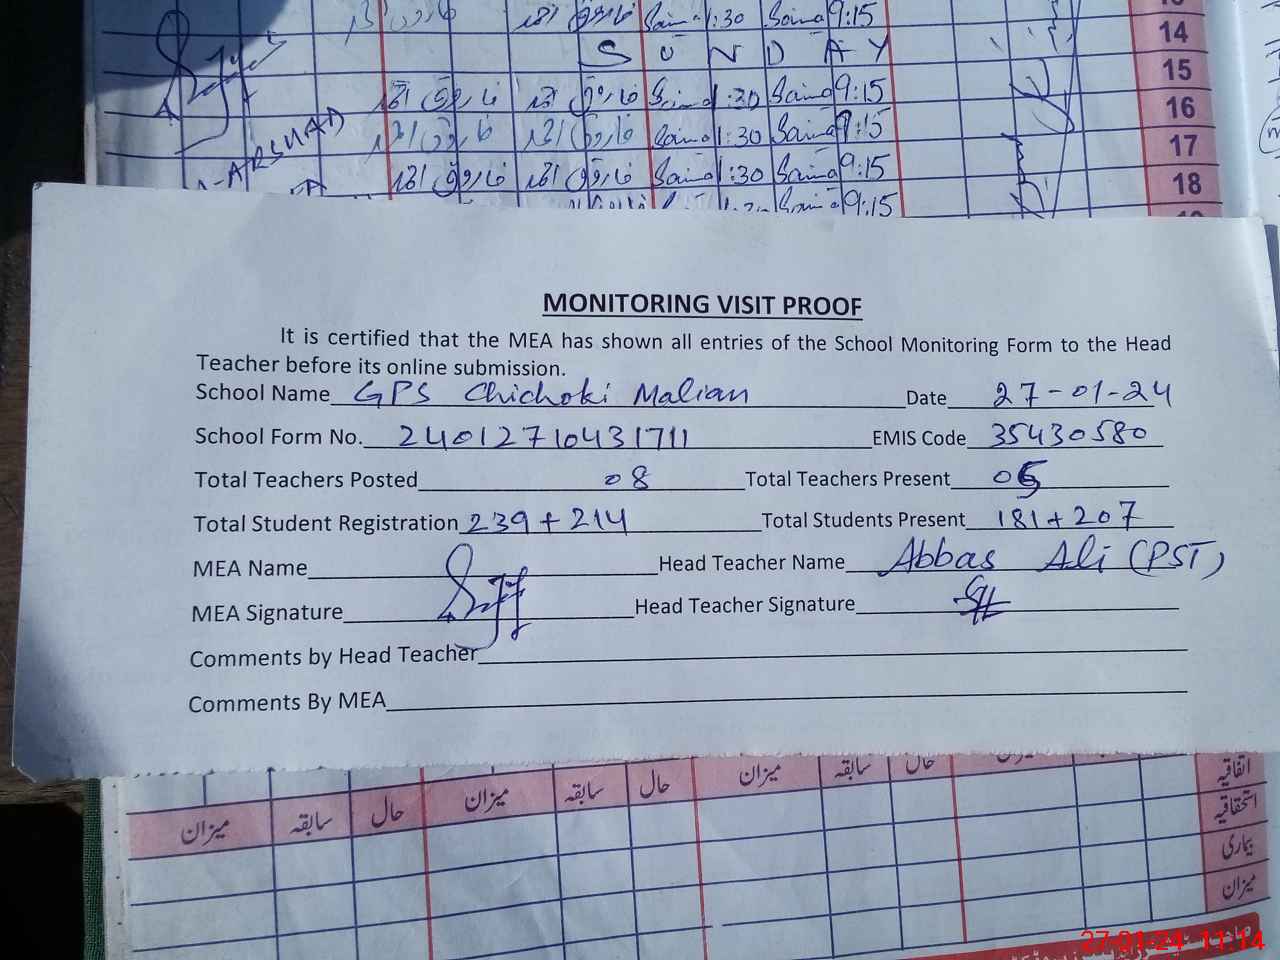 13
14
S U N D A Y
15
فاروق احمد فاروق احمد Saima 1:30 Saima 9:15
16
فاروق احمد فاروق احمد Saima 1:30 Saima 9:15
17
فاروق احمد فاروق احمد Saima 1:30 Saima 9:15
18
ARSHAD
MONITORING VISIT PROOF
It is certified that the MEA has shown all entries of the School Monitoring Form to the Head
Teacher before its online submission.
School Name GPS Chichoki Malian Date 27-01-24
School Form No. 24012710431711 EMIS Code 35430580
Total Teachers Posted 08 Total Teachers Present 05
Total Student Registration 239+214 Total Students Present 181+207
MEA Name Head Teacher Name Abbas Ali (PST)
MEA Signature Head Teacher Signature
Comments by Head Teacher
Comments By MEA
اتفاقیہ
میزان سابقہ حال میزان سابقہ حال میزان سابقہ حال
استحقاقیہ
بیماری
میزان
27-01-24 11:14